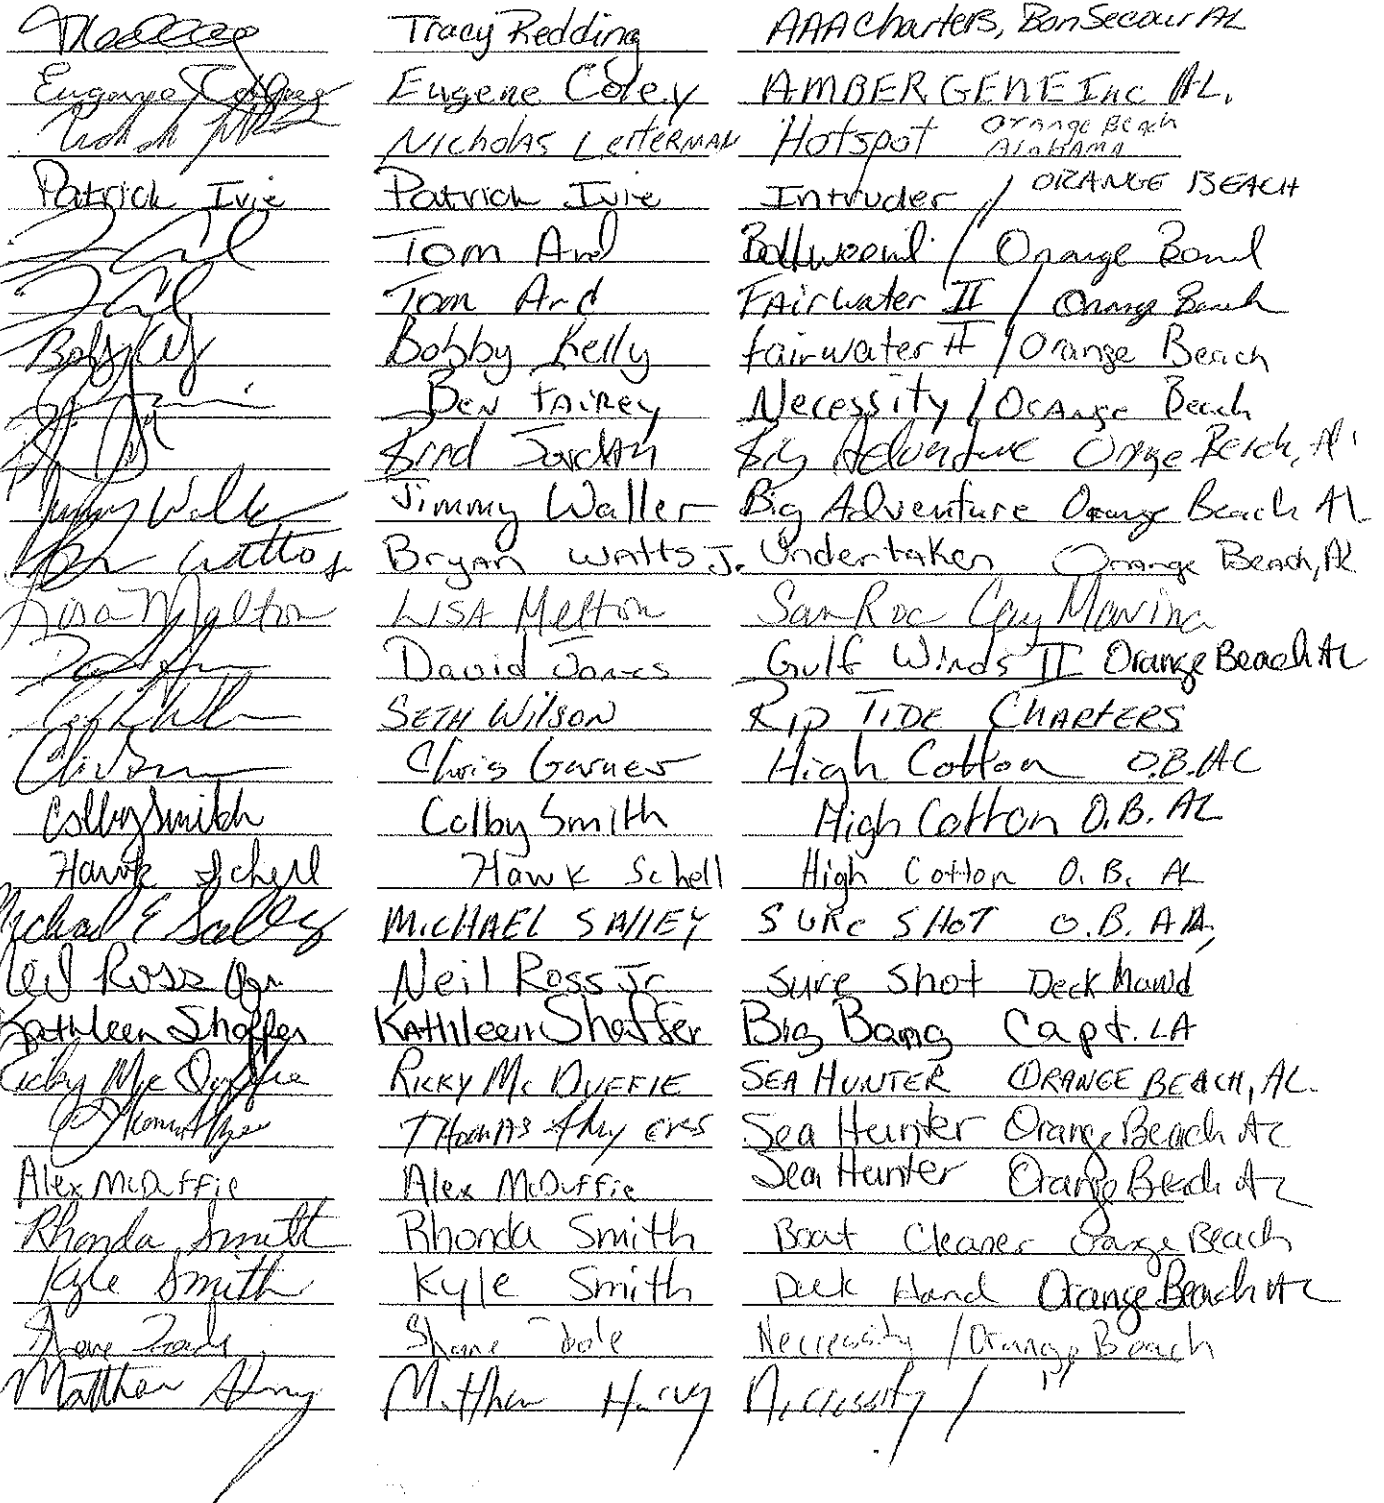 Tracy Redding AAA Charters, Bon Secour AL
Eugene Coley Eugene Coley AMBER GENE Inc AL.
Nicholas Leiterman Hotspot Orange Beach Alabama
Patrick Ivie Patrick Ivie Intruder / ORANGE BEACH
Tom Ard Bollweevil / Orange Beach
Tom Ard FAirwater II / Orange Beach
Bobby Kelly Bobby Kelly fairwater II / Orange Beach
Ben FAirey Necessity / Orange Beach
Brad Jordan Big Adventure Orange Beach, Al
Jimmy Waller Jimmy Waller Big Adventure Orange Beach AL
Watts Jr Bryan Watts Jr. Undertaker Orange Beach, AL
Lisa Melton LISA Melton SanRoc Cay Marina
David Jones Gulf Winds II Orange Beach AL
SETH WilSON RIP TIDE CHARTERS
Chris Garner High Cotton O.B. AL
Colby Smith Colby Smith High Cotton O.B. AL
Hawk Schell Hawk Schell High Cotton O.B. AL
Michael E Salley MICHAEL SAllEY SURE SHOT O.B. ALA,
Neil Ross Jr Neil Ross Jr Sure Shot Deck Hand
Kathleen Shaffer KAthleen Shaffer Big Bang Capt. LA
Ricky McDuffie RICKY Mc DUFFIE SEA HUNTER ORANGE BEACH, AL.
THomAS Sea Hunter Orange Beach AL
Alex McDuffie Alex McDuffie Sea Hunter Orange Beach AL
Rhonda Smith Rhonda Smith Boat Cleaner Orange Beach
Kyle Smith Kyle Smith Deck Hand Orange Beach AL
Shane Shane Necessity / Orange Beach
Matthew Matthew Harvey Necessity / "